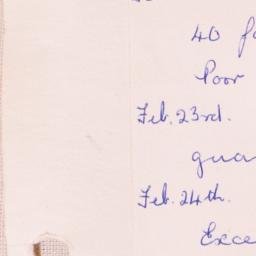 40 f
Poor
Feb. 23rd.
qua
Feb. 24th.
Exce